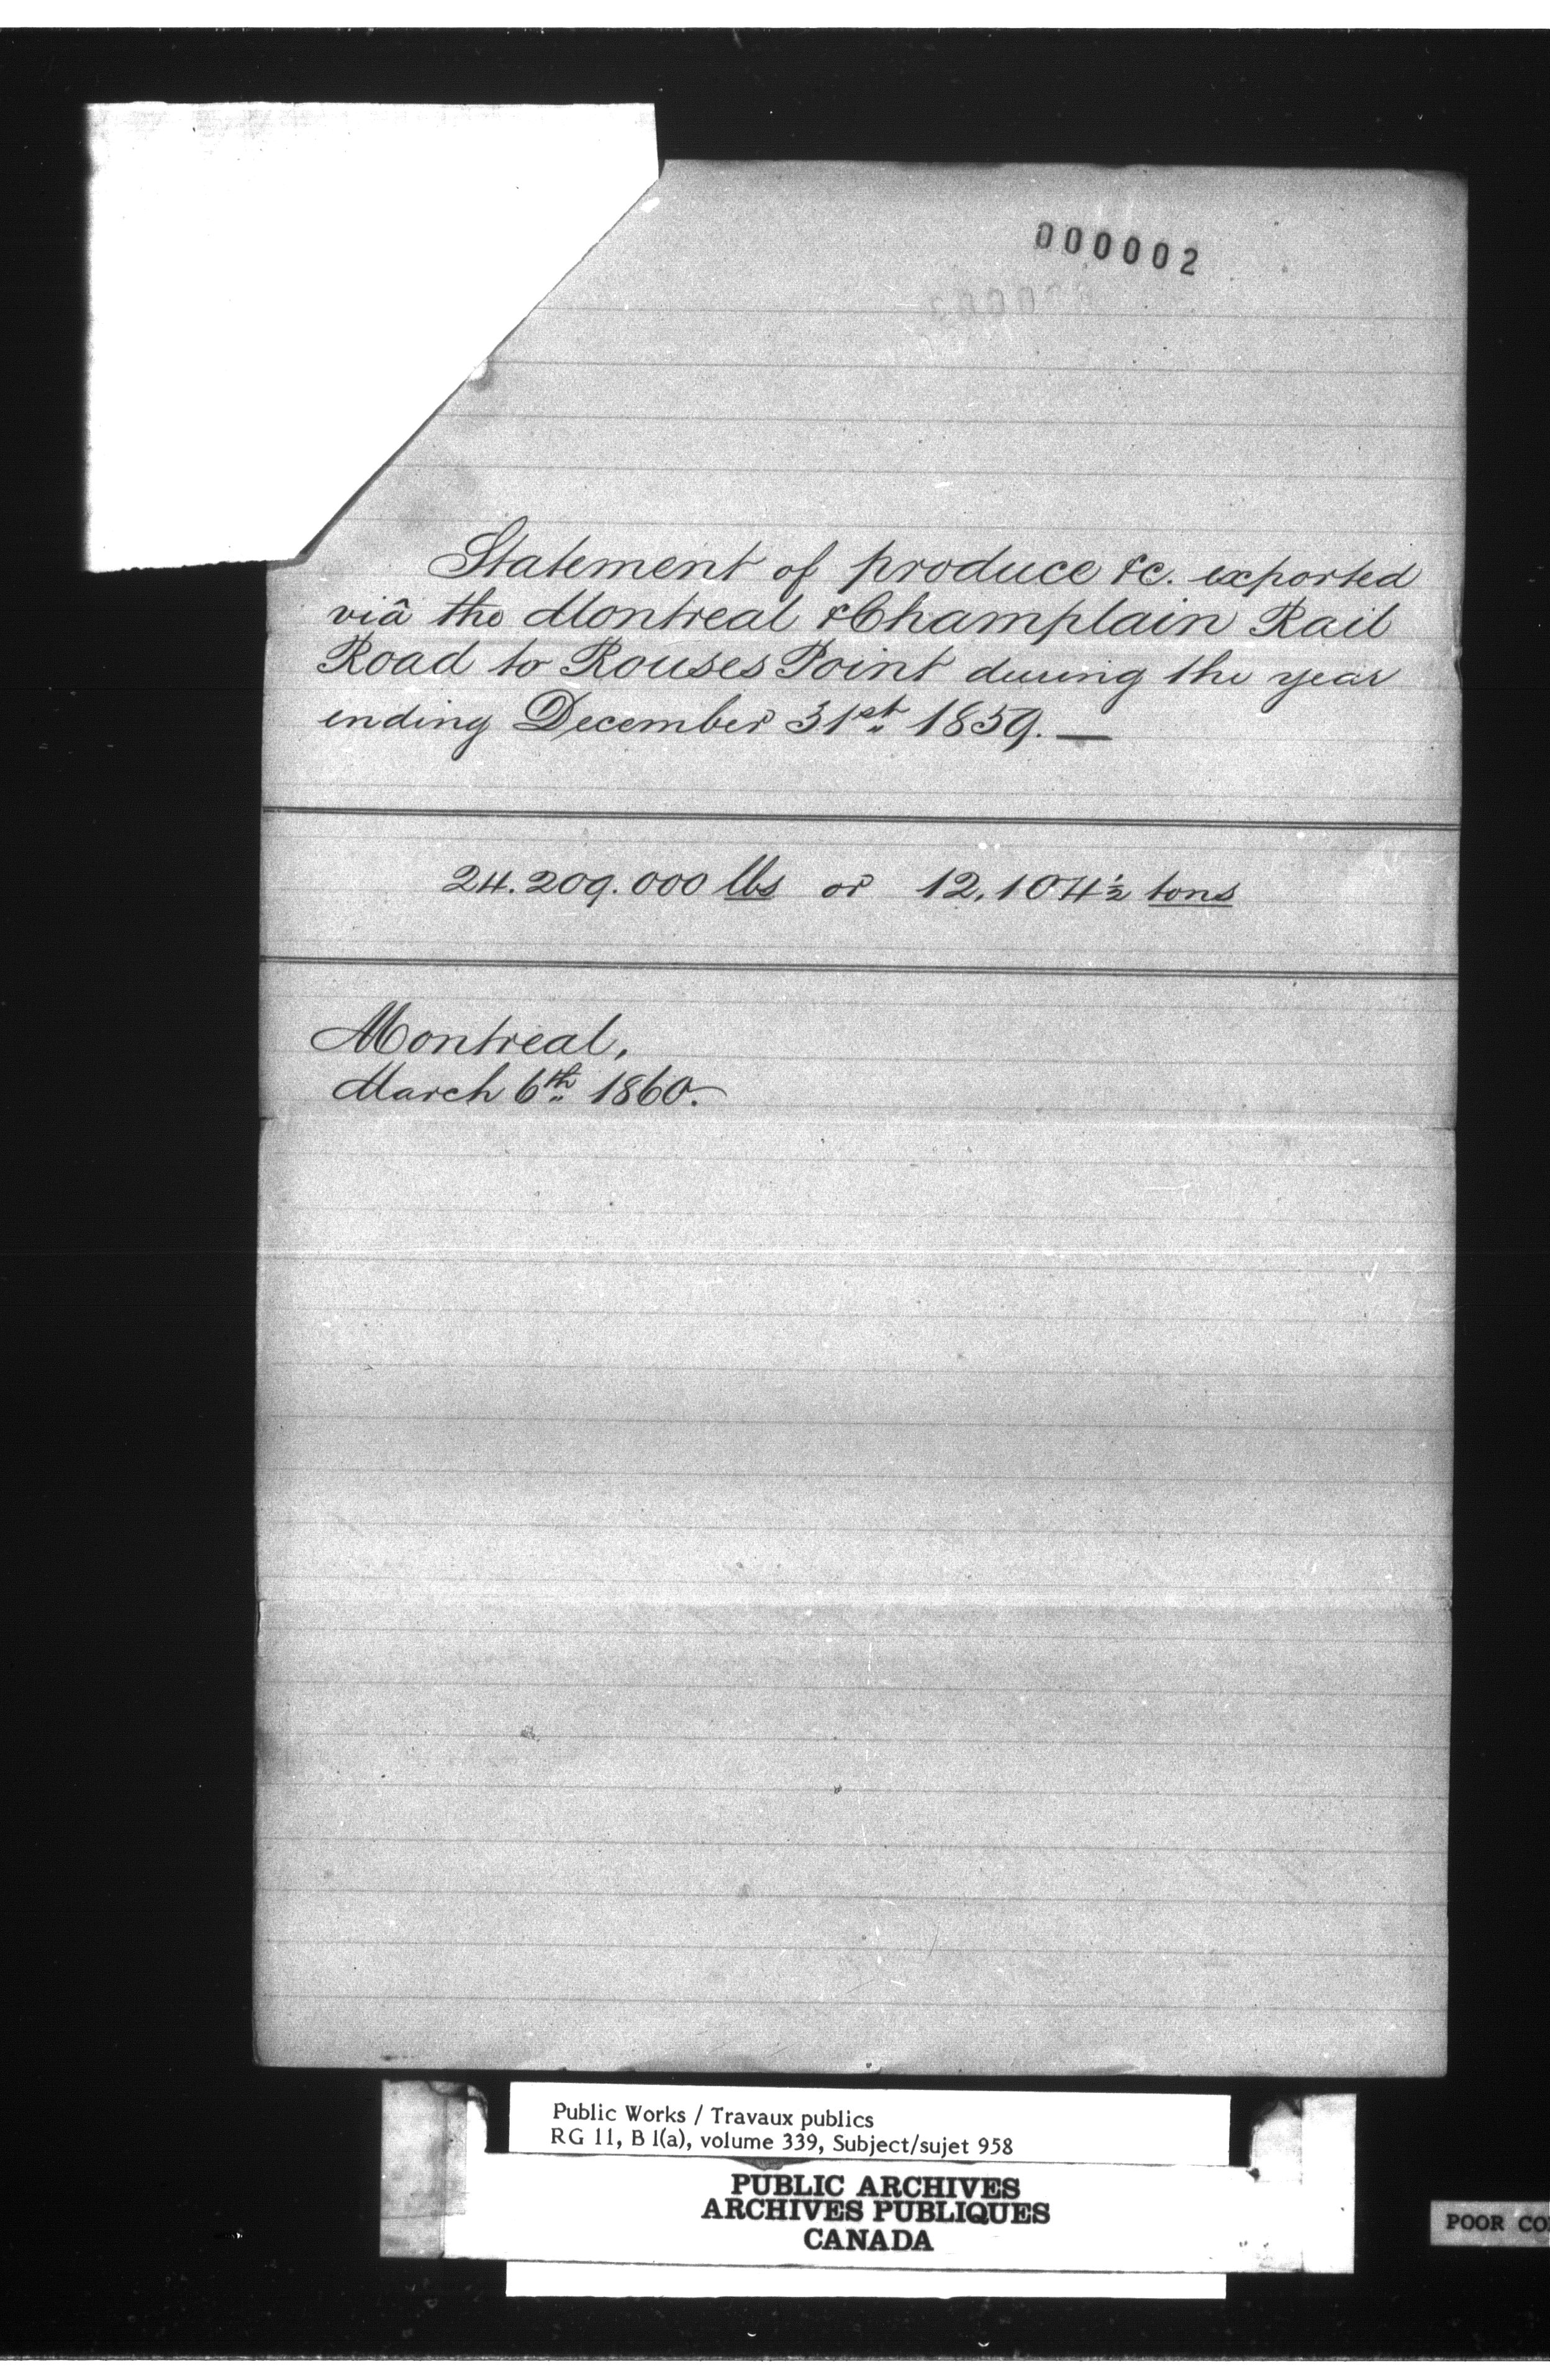 000002
Statement of produce &c. exported
viâ the Montreal & Champlain Rail
Road to Rouses Point during the year
ending December 31st 1859. —
24.209.000 lbs or 12,104½ tons
Montreal,
March 6th 1860.
Public Works / Travaux publics
RG 11, B 1(a), volume 339, Subject/sujet 958
PUBLIC ARCHIVES
ARCHIVES PUBLIQUES
CANADA
POOR CO